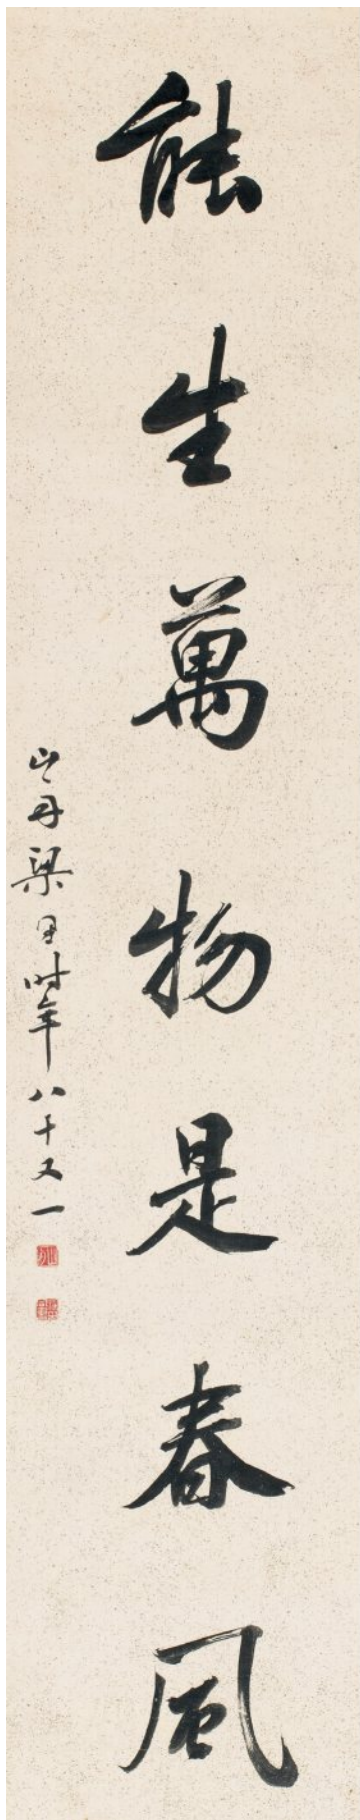 能生萬物是春風
山舟梁同書時年八十又一